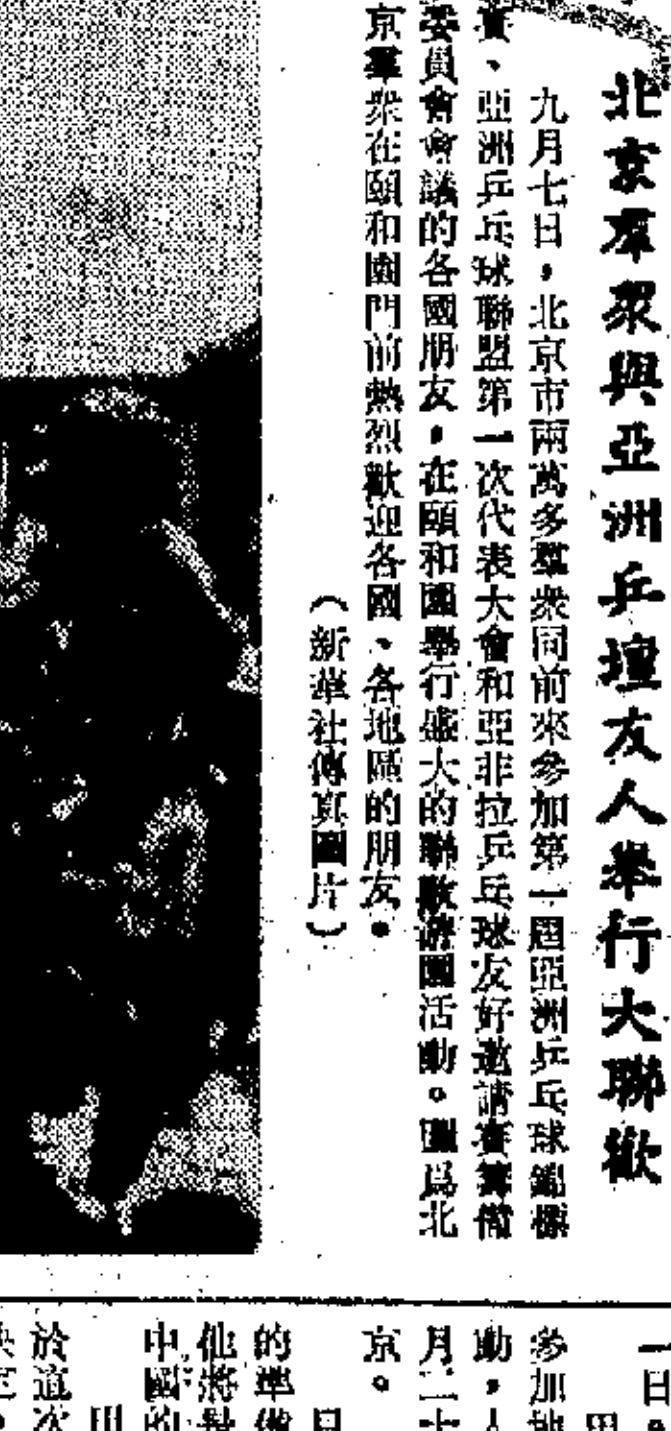 北京羣衆與亞洲乒壇友人舉行大聯歡
九月七日，北京市兩萬多羣衆同前來參加第一屆亞洲乒乓球錦標
賽、亞洲乒乓球聯盟第一次代表大會和亞非拉乒乓球友好邀請賽籌備
委員會會議的各國朋友，在頤和園舉行盛大的聯歡遊園活動。圖爲北
京羣衆在頤和園門前熱烈歡迎各國、各地區的朋友。
（新華社傳真圖片）
一日。
參加地
動，人
月二十
京。
的準備
他將是
中國的
於這次